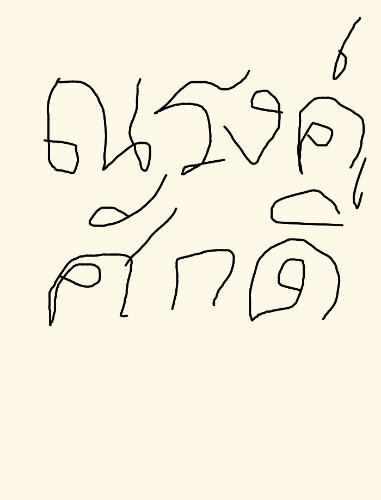 ณรงค์
ศักดิ์